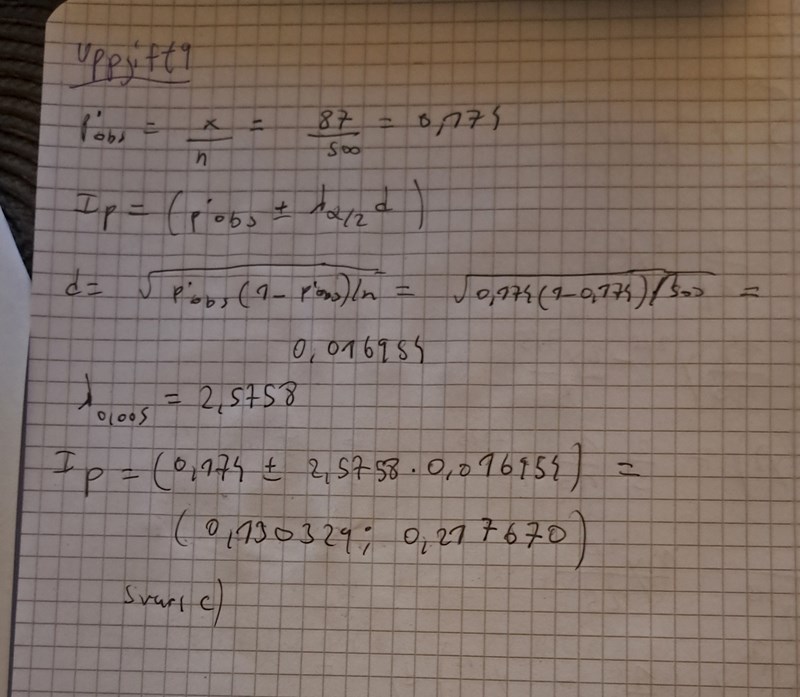 Uppgift 9
p*obs = x/n = 87/500 = 0,174
Ip = (p*obs ± λα/2 d)
d = √p*obs(1-p*obs)/n = √0,174(1-0,174)/500 =
0,016954
λ0,005 = 2,5758
Ip = (0,174 ± 2,5758 · 0,016954) =
(0,130329; 0,217670)
Svar: c)